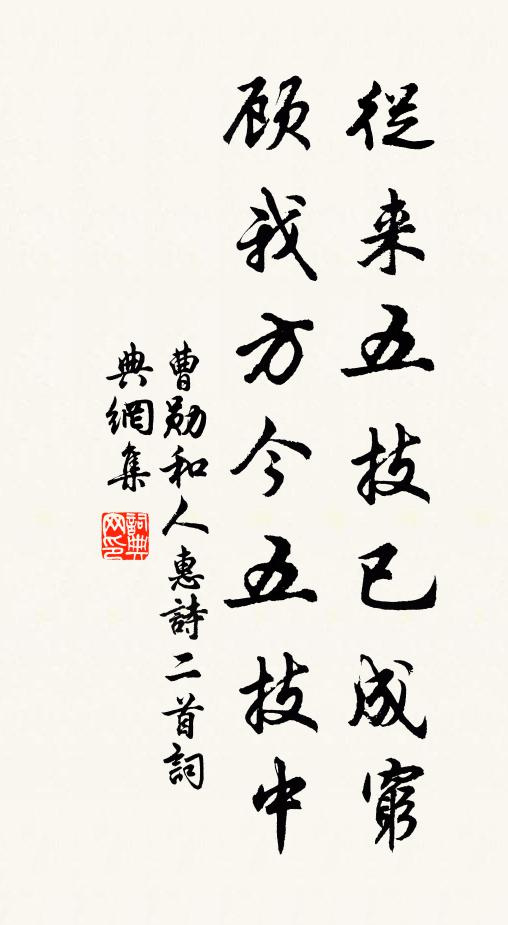 從来五技已成窮
顧我方今五技中
曹勛和人惠詩二首詞
典網集
詞典网印